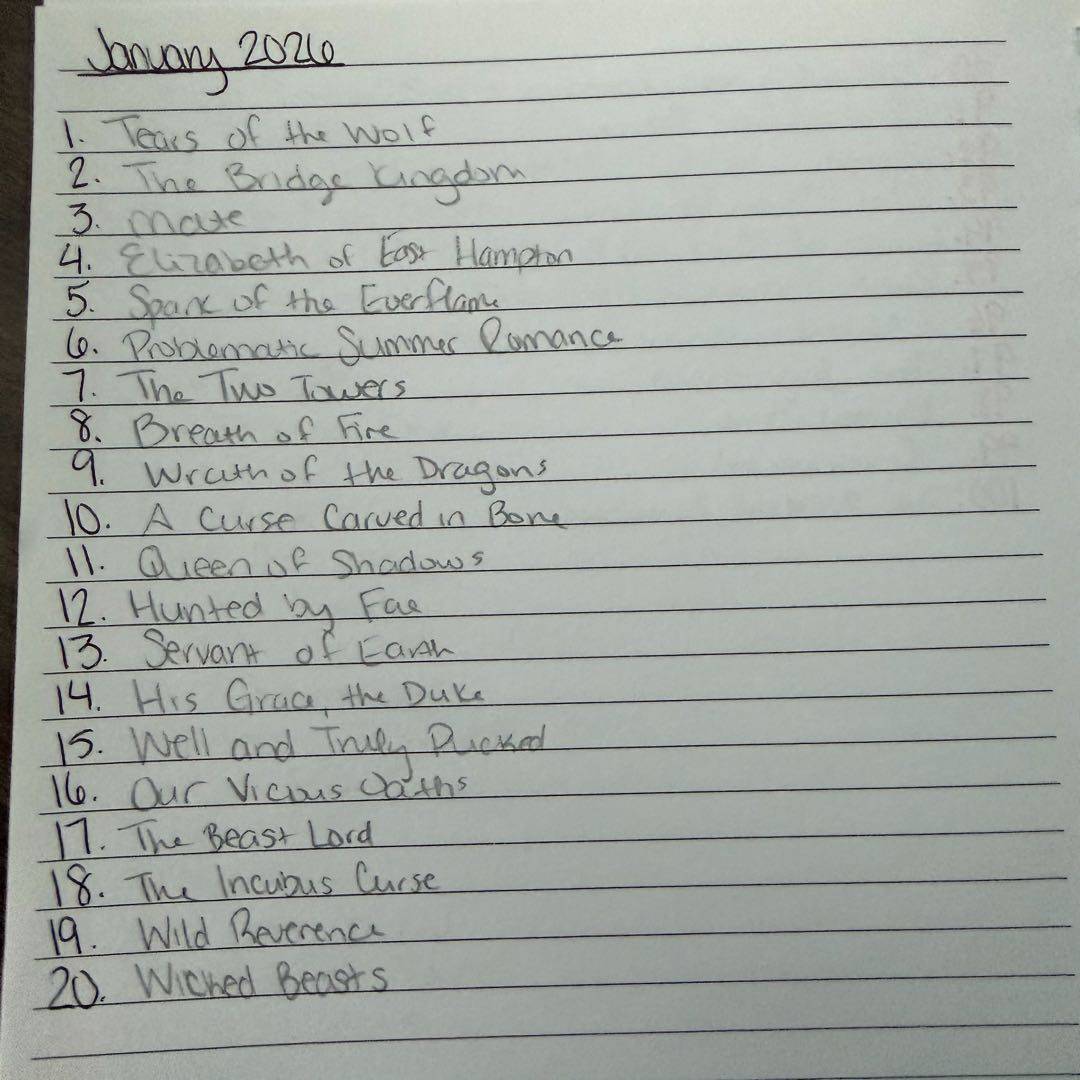 January 2026
1. Tears of the Wolf
2. The Bridge Kingdom
3. Mate
4. Elizabeth of East Hampton
5. Spark of the Everflame
6. Problematic Summer Romance
7. The Two Towers
8. Breath of Fire
9. Wrath of the Dragons
10. A Curse Carved in Bone
11. Queen of Shadows
12. Hunted by Fae
13. Servant of Earth
14. His Grace, the Duke
15. Well and Truly Pucked
16. Our Vicious Oaths
17. The Beast Lord
18. The Incubus Curse
19. Wild Reverence
20. Wicked Beasts